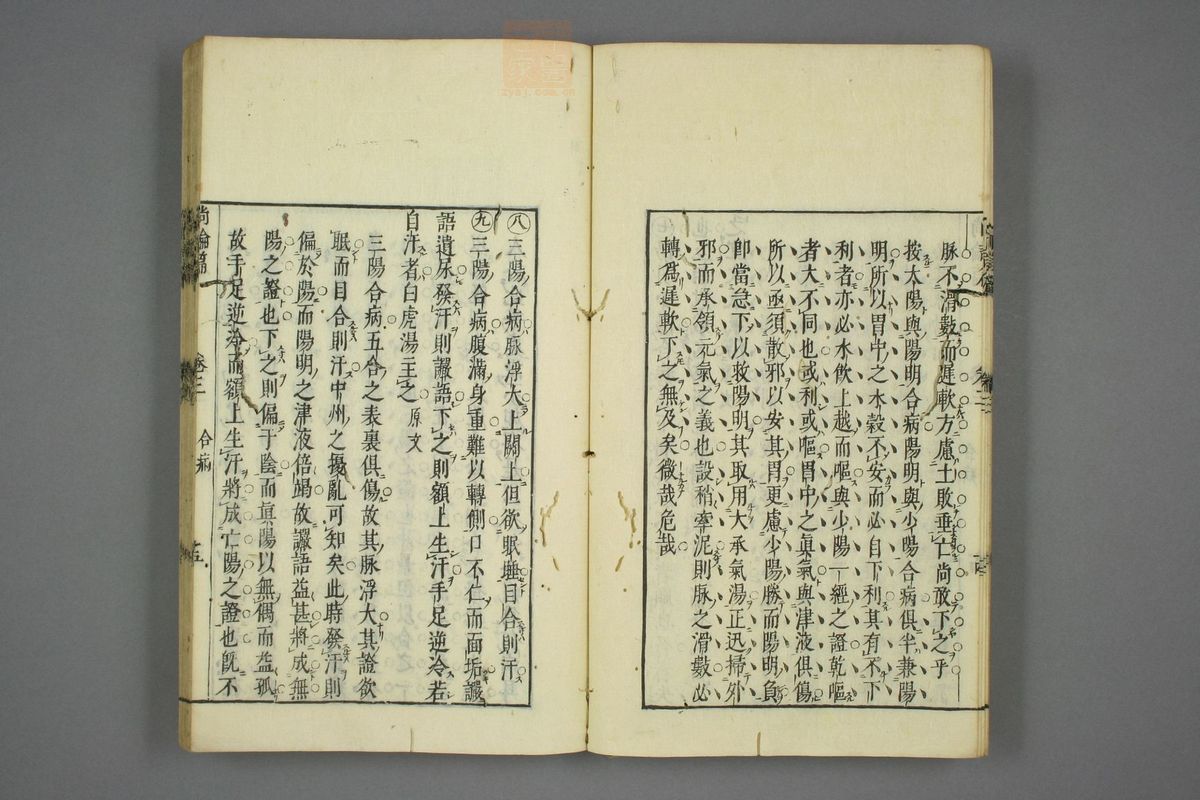 脉不滑數而遲軟方慮土敗垂亡尚敢下之乎
按太陽與陽明合病陽明與少陽合病俱半兼陽
明所以胃中之水穀不安而必自下利其有不下
利者亦必水飲上越而嘔與少陽一經之證乾嘔
者大不同也或利或嘔胃中之眞氣與津液俱傷
所以亟須散邪以安其胃更慮少陽勝而陽明負
卽當急下以救陽明其取用大承氣湯正迅掃外
邪而承領元氣之義也設稍牽泥則脉之滑數必
轉爲遲軟下之無及矣微哉危哉
八三陽合病脉浮大上關上但欲眠睡目合則汗
九三陽合病腹滿身重難以轉側口不仁而面垢讝
語遺尿發汗則讝語下之則額上生汗手足逆冷若
自汗者白虎湯主之 原文
三陽合病五合之表裏俱傷故其脉浮大其證欲
眠而目合則汗中州之擾亂可知矣此時發汗則
偏於陽而陽明之津液倍竭故讝語益甚將成無
陽之證也下之則偏于陰而眞陽以無偶而益孤
故手足逆冷而額上生汗將成亡陽之證也旣不
尚論篇 卷三 合病
zysj.com.cn